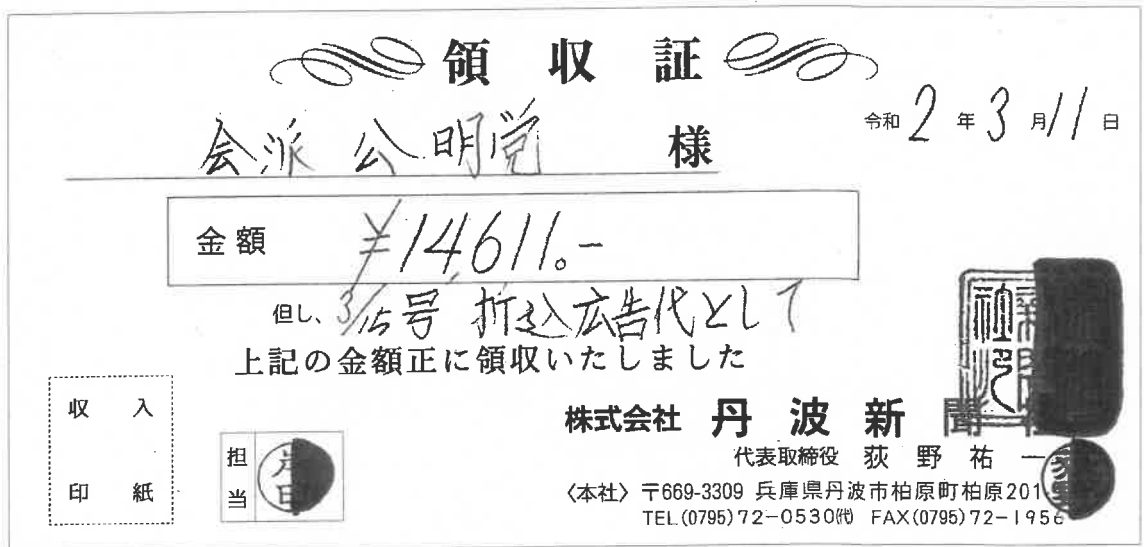 領収証
令和2年3月11日
会派 公明党 様
金額 ¥14611.-
但し、3/15号 折込広告代として
上記の金額正に領収いたしました
収入
印紙
担当
株式会社 丹波新聞
代表取締役 荻野祐一
〈本社〉〒669-3309 兵庫県丹波市柏原町柏原201
TEL(0795)72-0530㈹ FAX(0795)72-1956